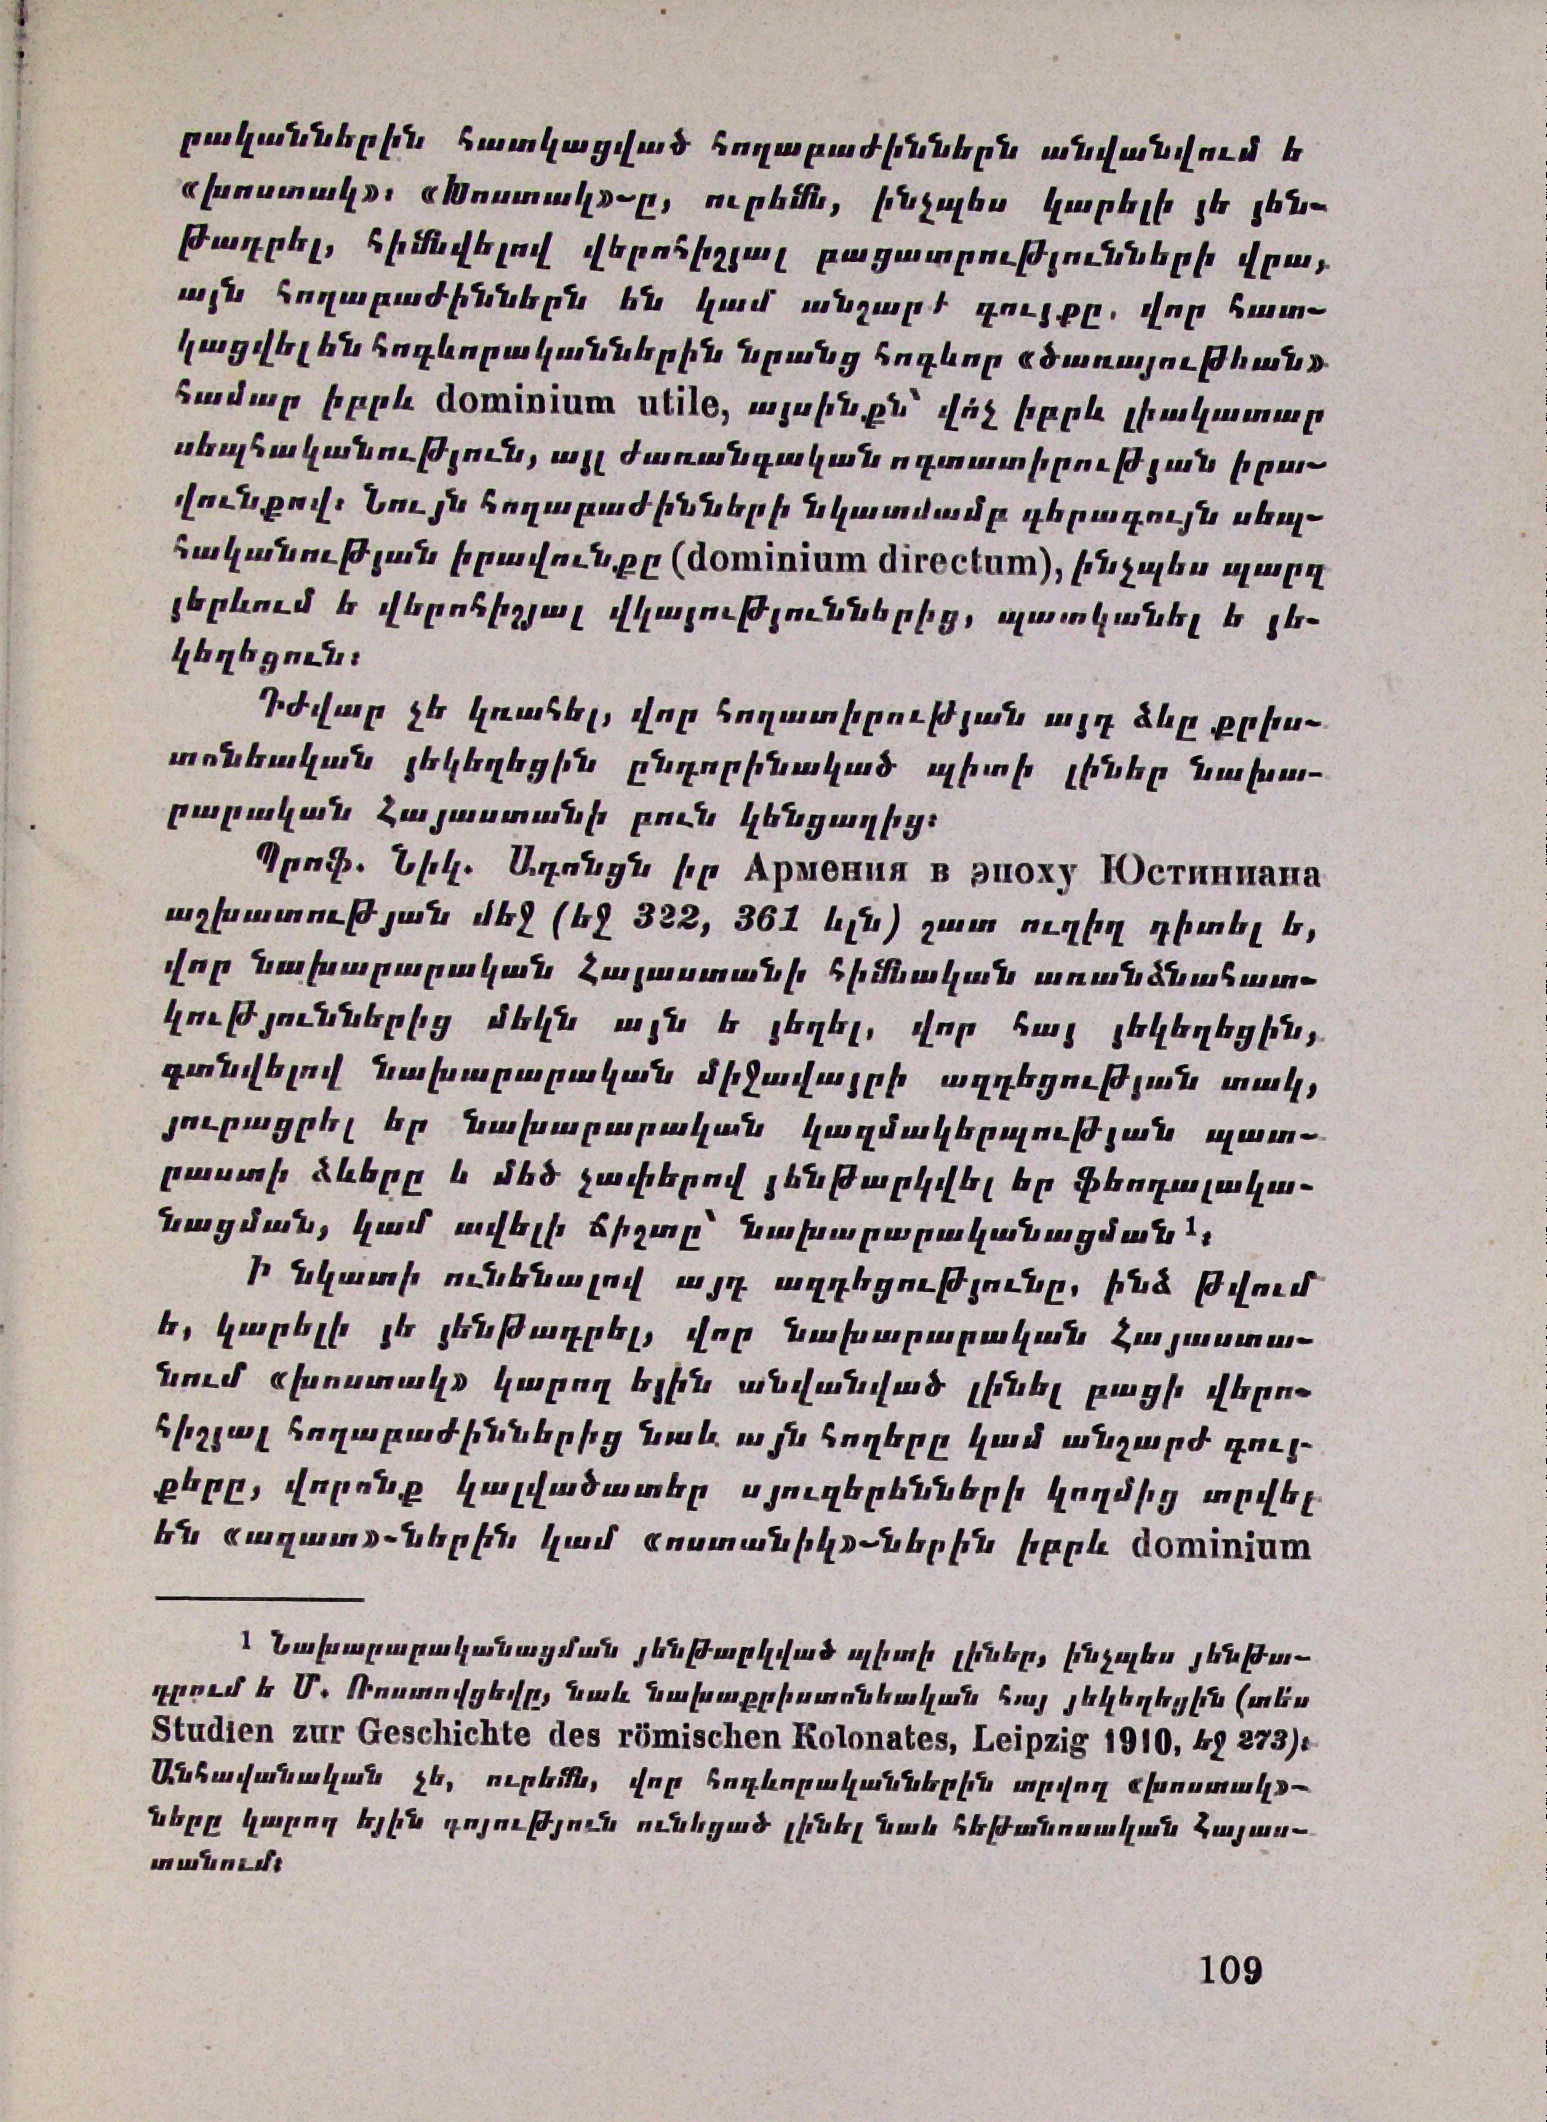 րականներին հատկացված հողաբաժիններն անվանվում ե
«խոստակ»։ «Խոստակ»-ը, ուրեմն, ինչպես կարելի յե յեն-
թադրել, հիմնվելով վերոհիշյալ բացատրությունների վրա,
այն հողաբաժիններն են կամ անշարժ գույքը, վոր հատ-
կացվել են հոգևորականներին նրանց հոգևոր «ծառայութեան»
համար իբրև dominium utile, այսինքն՝ վո՛չ իբրև լիակատար
սեպհականություն, այլ ժառանգական ոգտատիրության իրա-
վունքով։ Նույն հողաբաժինների նկատմամբ գերագույն սեպ-
հականության իրավունքը (dominium directum), ինչպես պարզ
յերևում ե վերոհիշյալ վկայություններից, պատկանել ե յե-
կեղեցուն։
Դժվար չե կռահել, վոր հողատիրության այդ ձևը քրիս-
տոնեական յեկեղեցին ընդորինակած պիտի լիներ նախա-
րարական Հայաստանի բուն կենցաղից։
Պրոֆ. Նիկ. Ադոնցն իր Армения в эпоху Юстиниана
աշխատության մեջ (եջ 322, 361 ևլն) շատ ուղիղ դիտել ե,
վոր նախարարական Հայաստանի հիմնական առանձնահատ-
կություններից մեկն այն ե յեղել, վոր հայ յեկեղեցին,
գտնվելով նախարարական միջավայրի ազդեցության տակ,
յուրացրել եր նախարարական կազմակերպության պատ-
րաստի ձևերը և մեծ չափերով յենթարկվել եր ֆեոդալակա-
նացման, կամ ավելի ճիշտը՝ նախարարականացման¹։
Ի նկատի ունենալով այդ ազդեցությունը, ինձ թվում
ե, կարելի յե յենթադրել, վոր նախարարական Հայաստա-
նում «խոստակ» կարող եյին անվանված լինել բացի վերո-
հիշյալ հողաբաժիններից նաև այն հողերը կամ անշարժ գույ-
քերը, վորոնք կալվածատեր սյուզերենների կողմից տրվել
են «ազատ»-ներին կամ «ոստանիկ»-ներին իբրև dominium
¹ Նախարարականացման յենթարկված պիտի լիներ, ինչպես յենթա-
դրում ե Մ. Ռոստովցեվը, նաև նախաքրիստոնեական հայ յեկեղեցին (տե՛ս
Studien zur Geschichte des römischen Kolonates, Leipzig 1910, եջ 273)։
Անհավանական չե, ուրեմն, վոր հոգևորականներին տրվող «խոստակ»-
ները կարող եյին գոյություն ունեցած լինել նաև հեթանոսական Հայաս-
տանում։
109